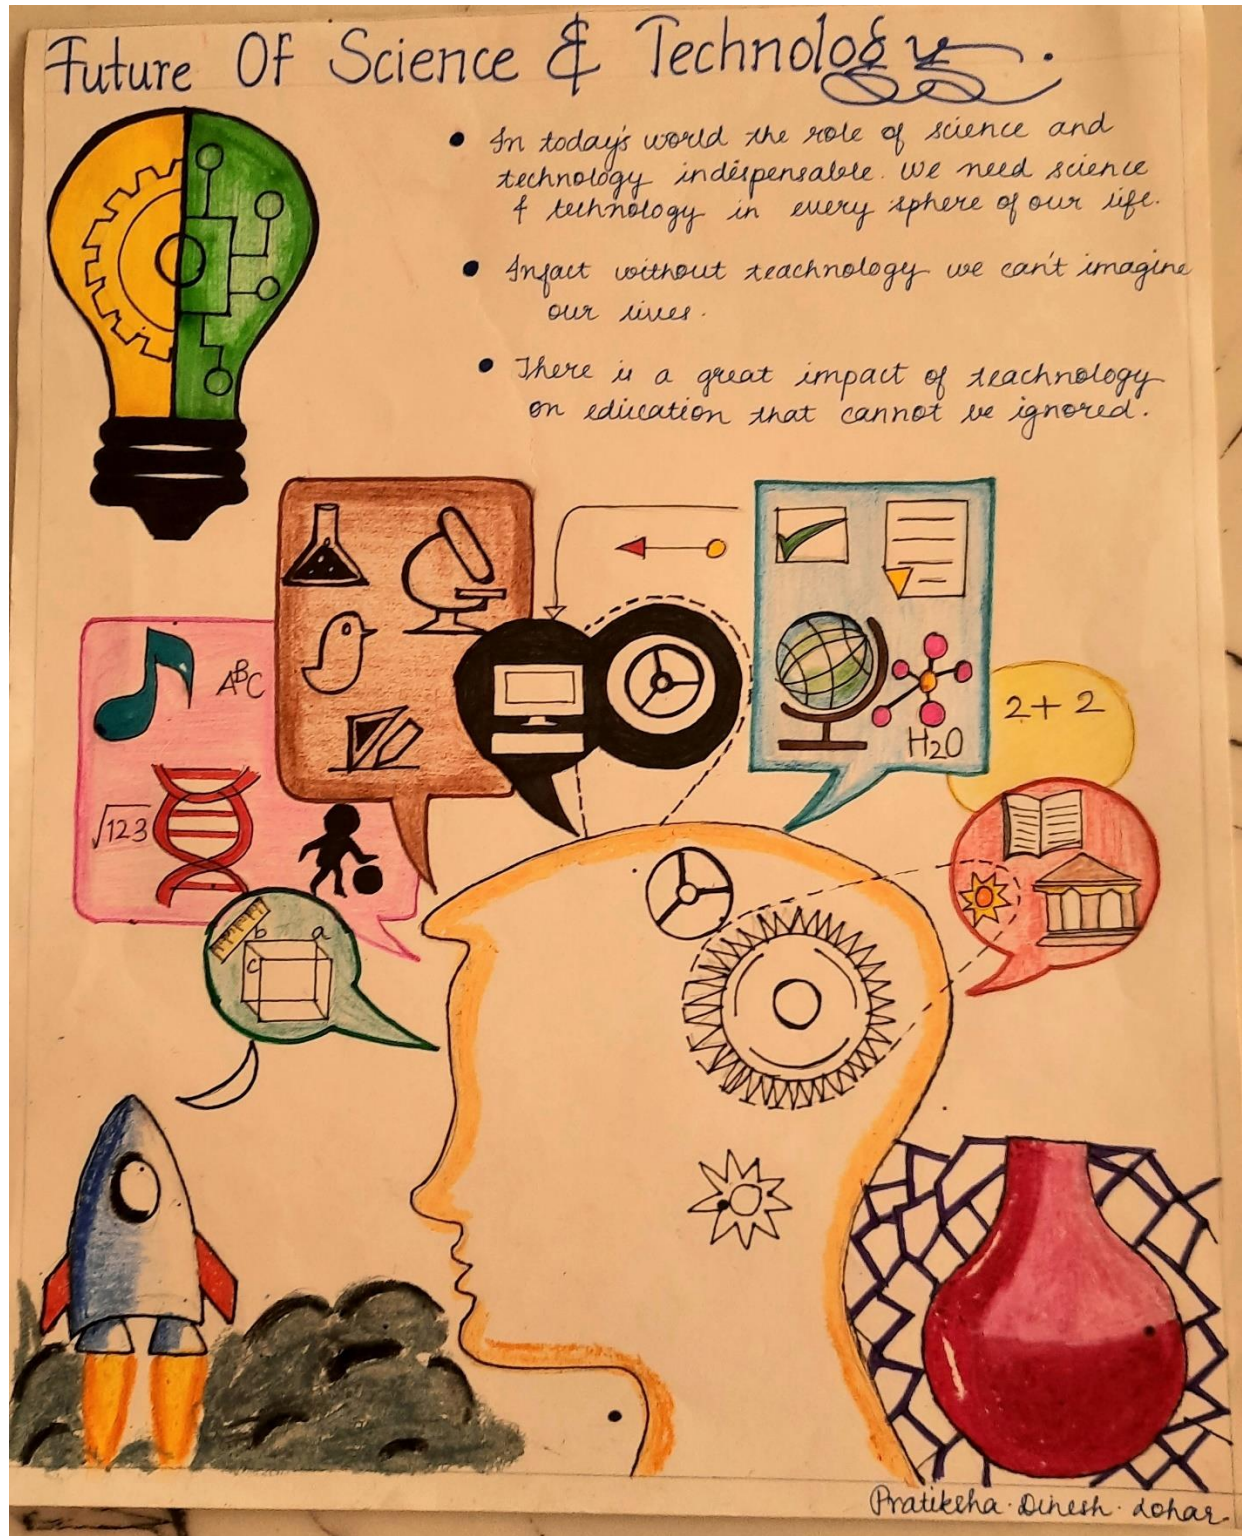 Future Of Science & Technology.
• In today's world the role of science and
technology indispensable. We need science
& technology in every sphere of our life.
• Infact without teachnology we can't imagine
our lives.
• There is a great impact of teachnology
on education that cannot be ignored.
ABC
√123
H2O
2+2
b a
c
Pratiksha. Dinesh. Lohar.